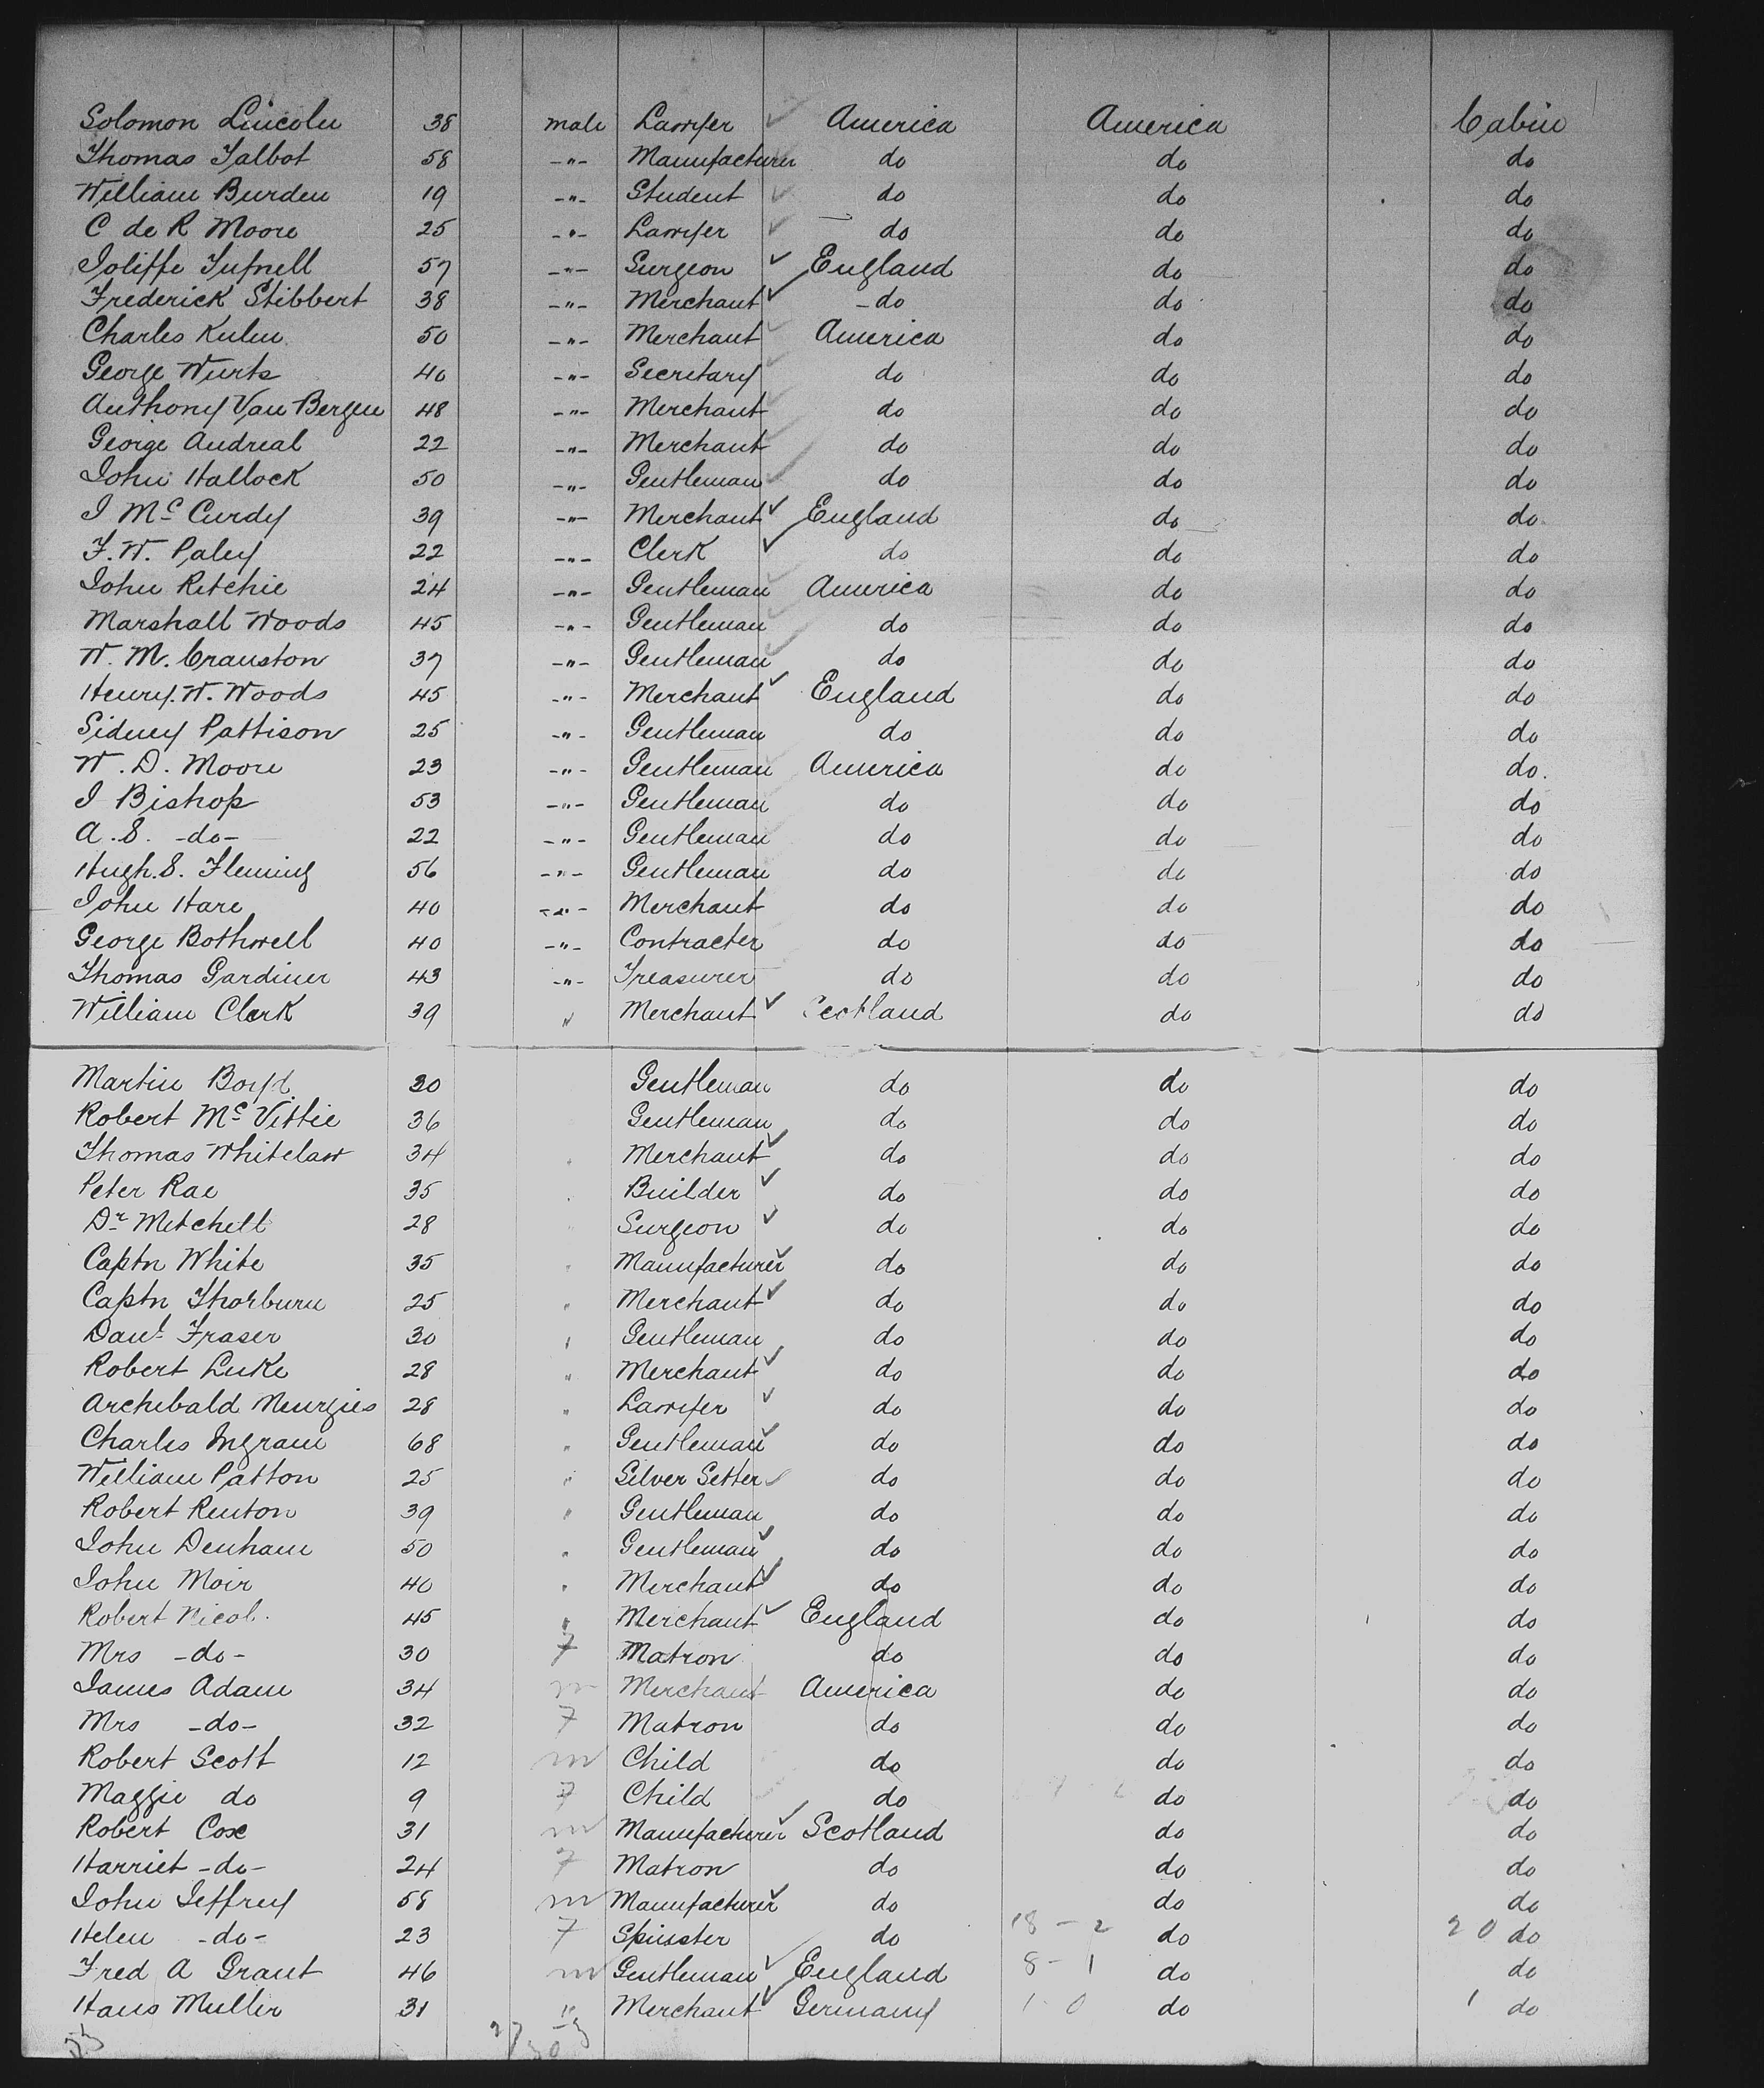 Solomon Lincoln 38 male Lawyer America America Cabin
Thomas Talbot 58 -"- Manufacturer do do do
William Burden 19 -"- Student do do do
C de R Moore 25 -"- Lawyer do do do
Joliffe Tufnell 57 -"- Surgeon England do do
Frederick Stibbert 38 -"- Merchant -do do do
Charles Kulen 50 -"- Merchant America do do
George Wurts 40 -"- Secretary do do do
Anthony Van Bergen 48 -"- Merchant do do do
George Andreal 22 -"- Merchant do do do
John Hallock 50 -"- Gentleman do do do
J McCurdy 39 -"- Merchant England do do
F. W. Paley 22 -"- Clerk do do do
John Ritchie 24 -"- Gentleman America do do
Marshall Woods 45 -"- Gentleman do do do
W. M. Cranston 37 -"- Gentleman do do do
Henry. W. Woods 45 -"- Merchant England do do
Sidney Pattison 25 -"- Gentleman do do do
W. D. Moore 23 -"- Gentleman America do do.
J Bishop 53 -"- Gentleman do do do
A. S. -do- 22 -"- Gentleman do do do
Hugh. S. Fleming 56 -"- Gentleman do do do
John Hare 40 -"- Merchant do do do
George Bothwell 40 -"- Contracter do do do
Thomas Gardiner 43 -"- Treasurer do do do
William Clark 39 " Merchant Scotland do do
Martin Boyd 30 Gentleman do do do
Robert McVittie 36 Gentleman do do do
Thomas Whitelaw 34 Merchant do do do
Peter Rae 35 Builder do do do
Dr Mitchell 28 Surgeon do do do
Captn White 35 " Manufacturer do do do
Captn Thorburn 25 " Merchant do do do
Danl Fraser 30 " Gentleman do do do
Robert Luke 28 " Merchant do do do
Archibald Menzies 28 " Lawyer do do do
Charles Ingram 68 " Gentleman do do do
William Patton 25 " Silver Setter do do do
Robert Renton 39 " Gentleman do do do
John Denham 50 " Gentleman do do do
John Moir 40 " Merchant do do do
Robert Nicol. 45 " Merchant England do do
Mrs -do- 30 F Matron do do do
James Adam 34 m Merchant America do do
Mrs -do- 32 F Matron do do do
Robert Scott 12 m Child do do do
Maggie do 9 F Child do do do
Robert Cox 31 m Manufacturer Scotland do do
Harriet -do- 24 F Matron do do do
John Jeffrey 58 m Manufacturer do do do
Helen -do- 23 F Spinster do 18 - 2 do 20 do
Fred A Grant 46 m Gentleman England 8 - 1 do do
Hans Muller 31 " Merchant Germany 1 0 do 1 do